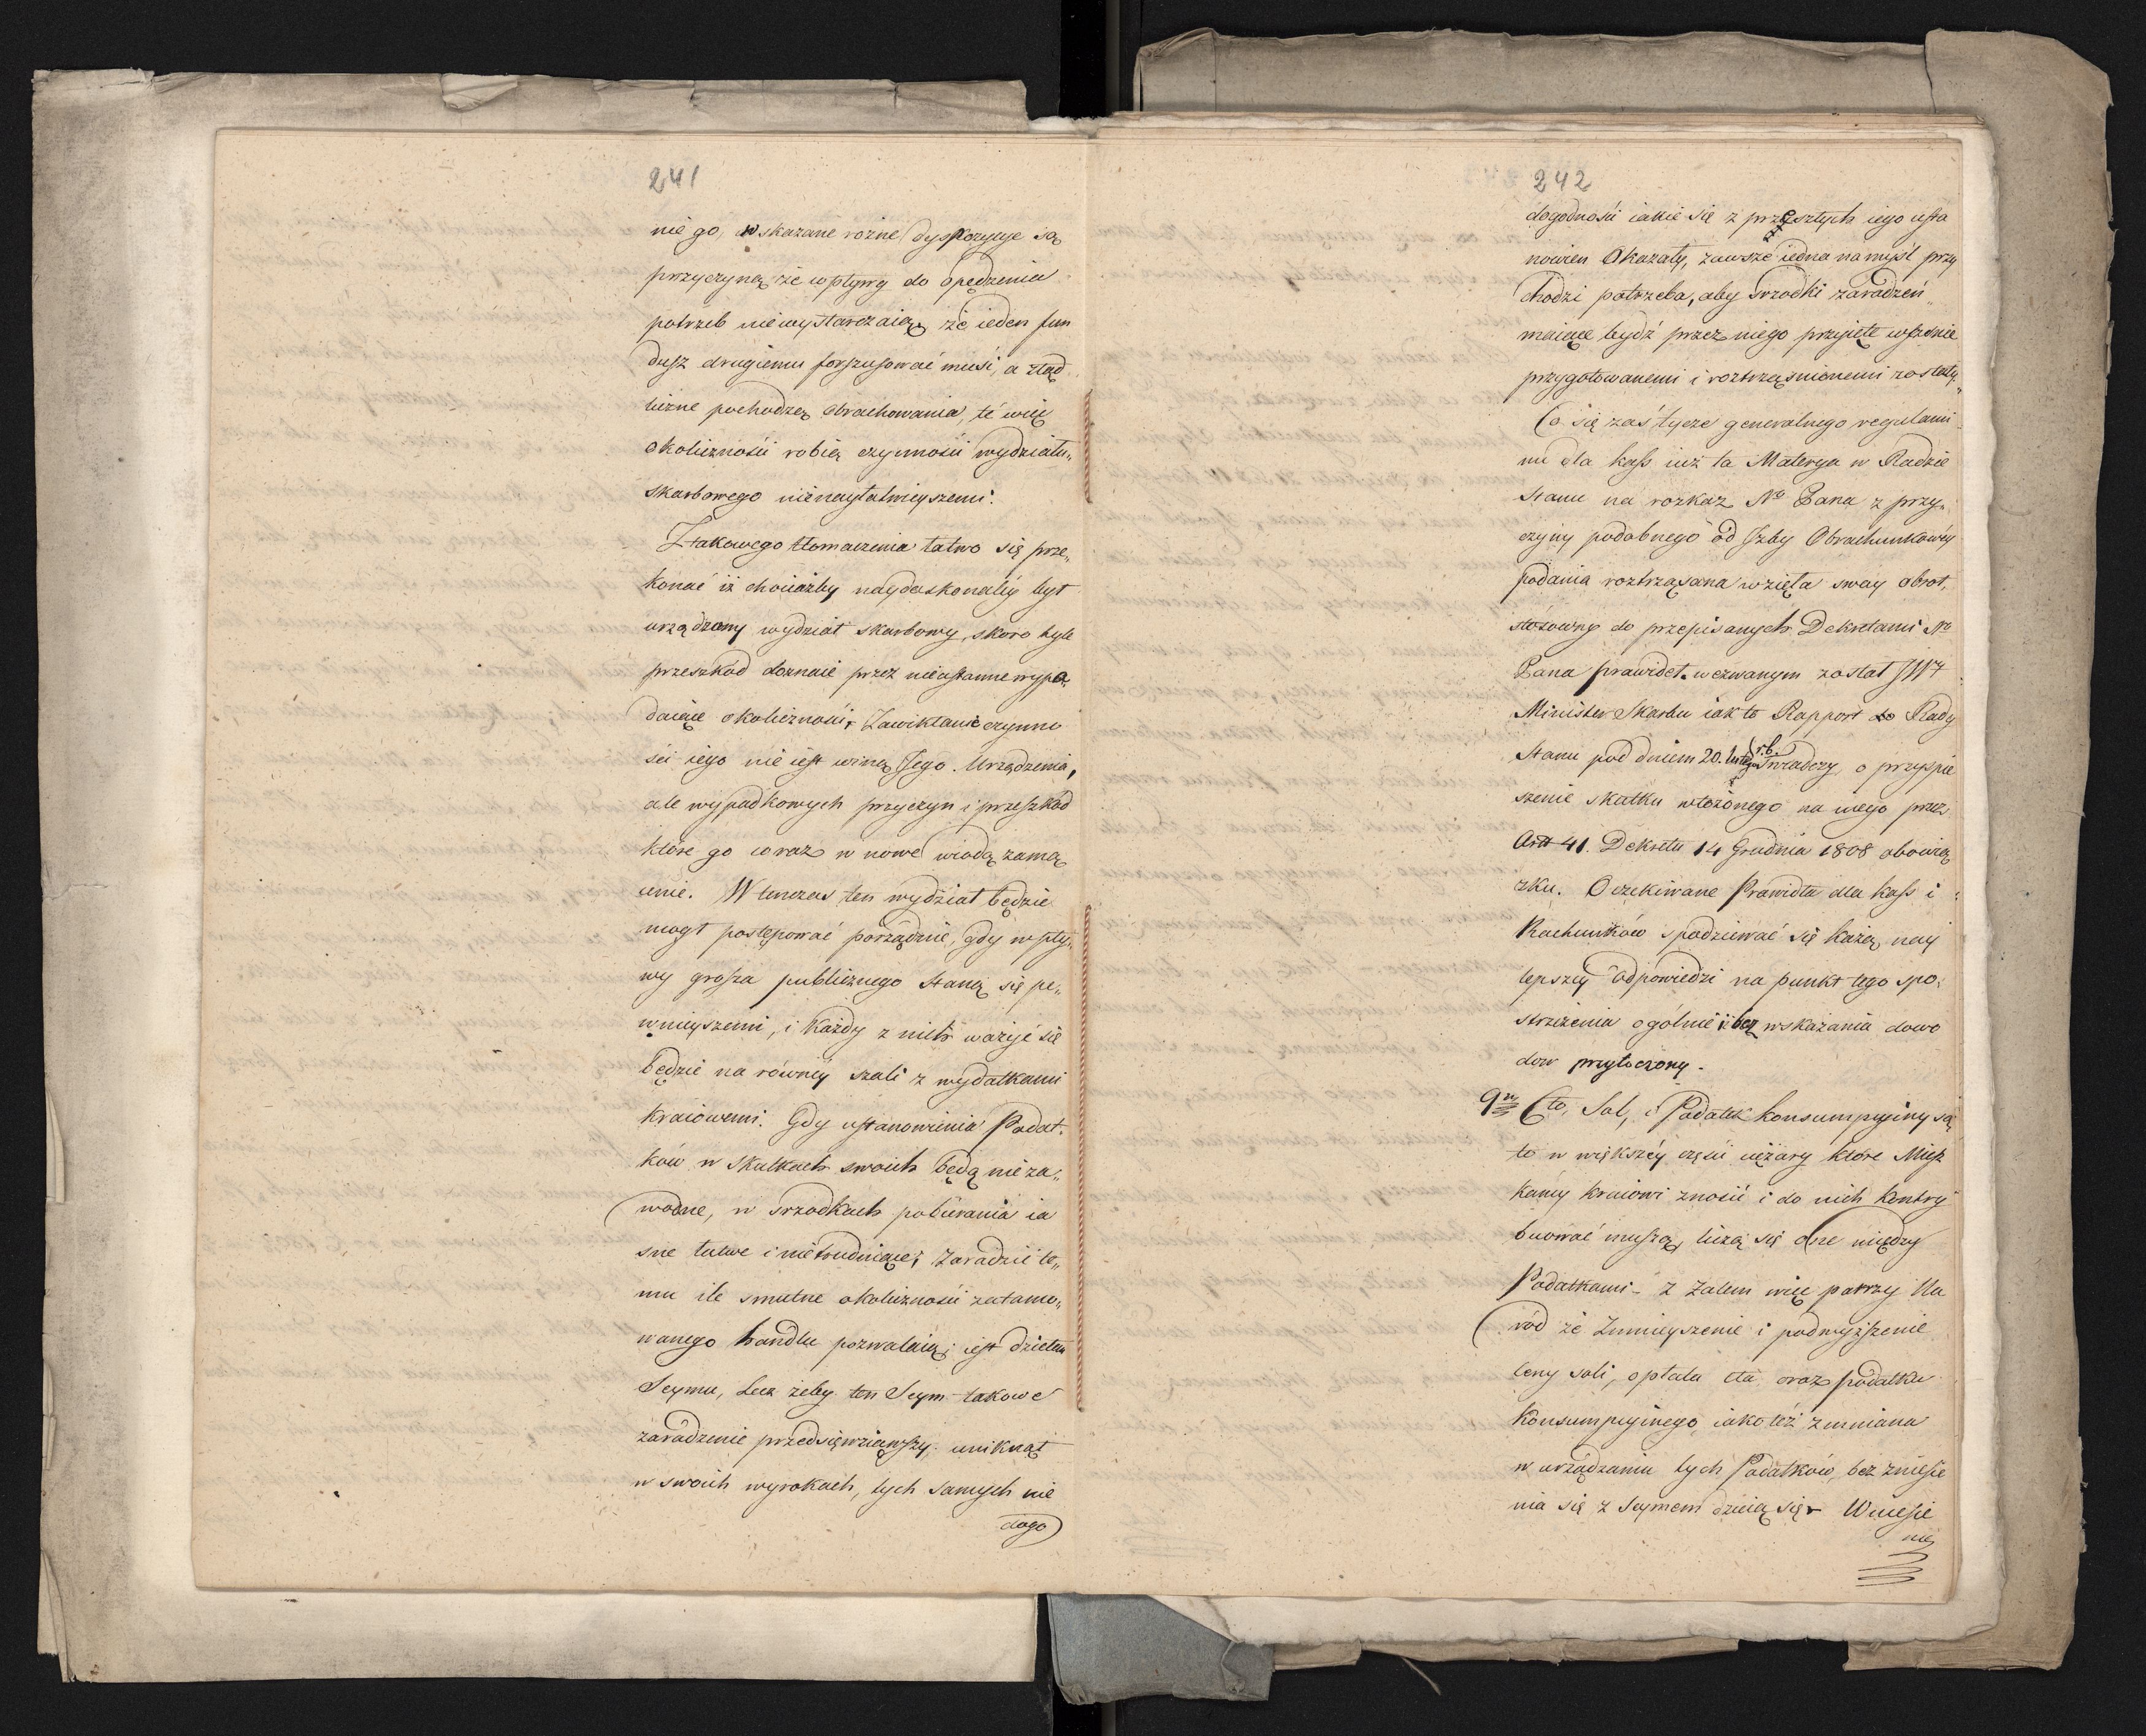 241
niego, wskazane rożne dyspozycye są
przyczyną że wpływy do opędzenia
potrzeb niewystarczaią, że ieden fun
dusz drugiemu forszusować musi, a ztąd
liczne pochodzą obrachowania, te więc
okoliczności robią czynności wydziału
skarbowego nienayłatwieyszemi.
Z takowego tłomaczenia łatwo się prze„
konać iż chociażby naydoskonaléy był
urządzony wydział skarbowy, skoro tyle
przeszkód doznaie przez nieustanne wypa„
daiące okoliczności, Zawikłanie czynno
ści iego nie iest winą Jego Urządzenia,
ale wypadkowych przyczyn i przeszkód
które go coraz w nowe wiodą zamą
cenie. W tenczas ten wydział będzie
mogł postępować porządnie, gdy wpły„
wy grosza publicznego staną się pe„
wnieyszemi, i każdy z nich ważyć się
będzie na równéy szali z wydatkami
kraiowemi. Gdy ustanowienia Podat„
ków w skutkach swoich będą nieza„
wodne, w srzodkach pobierania ia
sne łatwe i nietrudniące; Zaradzić te„
mu ile smutne okoliczności zatamo„
wanego handlu pozwalaią; iest dziełem
Seymu, Lecz żeby ten Seym takowe
zaradzenie przedsięwziąwszy, uniknął
w swoich wyrokach, tych samych nie
dogo
242
dogodności iakie się z przeszłych iego usta
nowien Okazały, zawsze iedna na myśl przy
chodzi potrzeba, aby srzodki zaradzeń
maiące bydź przez niego przyięte wcześnie
przygotowanemi i roztrząsnionemi zostały„
Co się zaś tycze generalnego regulami
nu dla kass iuż ta Materya w Radzie
Stanu na rozkaz No Pana z przy„
czyny podobnego od Izby Obrachunkowéy
podania roztrząsana wzięła swóy obrot,
stosowny do przepisanych Dekretami No
Pana prawideł. wezwanym został JW
Minister Skarbu iak to Rapport do Rady
Stanu pod dniem 20. lutego r.b. świadczy, o przyspie
szenie skutku włożonego na niego przez
Art 41. Dekretu 14 Grudnia 1808 obowią
zku. Oczekiwane Prawidła dla kass i
Rachunków spodziewać się każą nay
lepszéy odpowiedzi na punkt tego spo„
strzeżenia ogólnie i bez wskazania dowo
dow przytoczony.
9no Cło, Sol, i Podatek konsumpcyiny są
to w większéy części ciężary które Miesz
kańcy kraiowi znosić i do nich kontry
buować muszą, liczą się one między
Podatkami. Z żalem więc patrzy Na
ród że Zmnieyszenie i podwyższenie
Ceny soli, opłata cła oraz podatku
konsumpcyinego, iako też zmniana
w urządzaniu tych Podatków, bez zniesie
nia się z Seymem dzieią się. Wniesie
nie